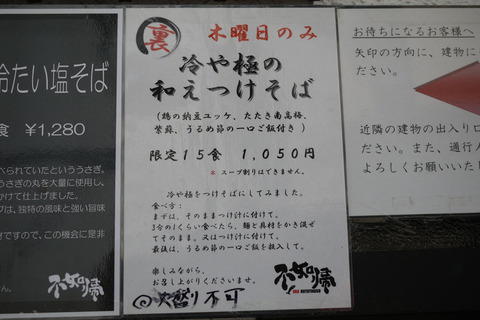 冷たい塩そば
食 ¥1,280
べられていたといううさぎ。
うさぎの丸を大量に使用し、
かけて仕上げました。
プは、独特の風味と強い旨味
ですので、この機会に是非
裏 木曜日のみ
冷や極の
和えつけそば
(鶏の納豆ユッケ、たたき南高梅、
紫蘇、うるめ節の一口ご飯付き)
限定15食 1,050円
* スープ割りはできません。
冷や極をつけそばにしてみました。
食べ方:
まずは、そのままつけ汁に付けて。
3分の1くらい食べたら、麺と具材をかき混ぜ
てそのまま。又はつけ汁に付けて。
最後は、うるめ節の一口ご飯を投入して。
楽しみながら、
お召し上がりくださいませ。
不如帰
◎大盛り不可
お待ちになるお客様へ
矢印の方向に、建物に
ださい。
近隣の建物の出入り口
ださい。また、通行人
よろしくお願いいた
不如帰